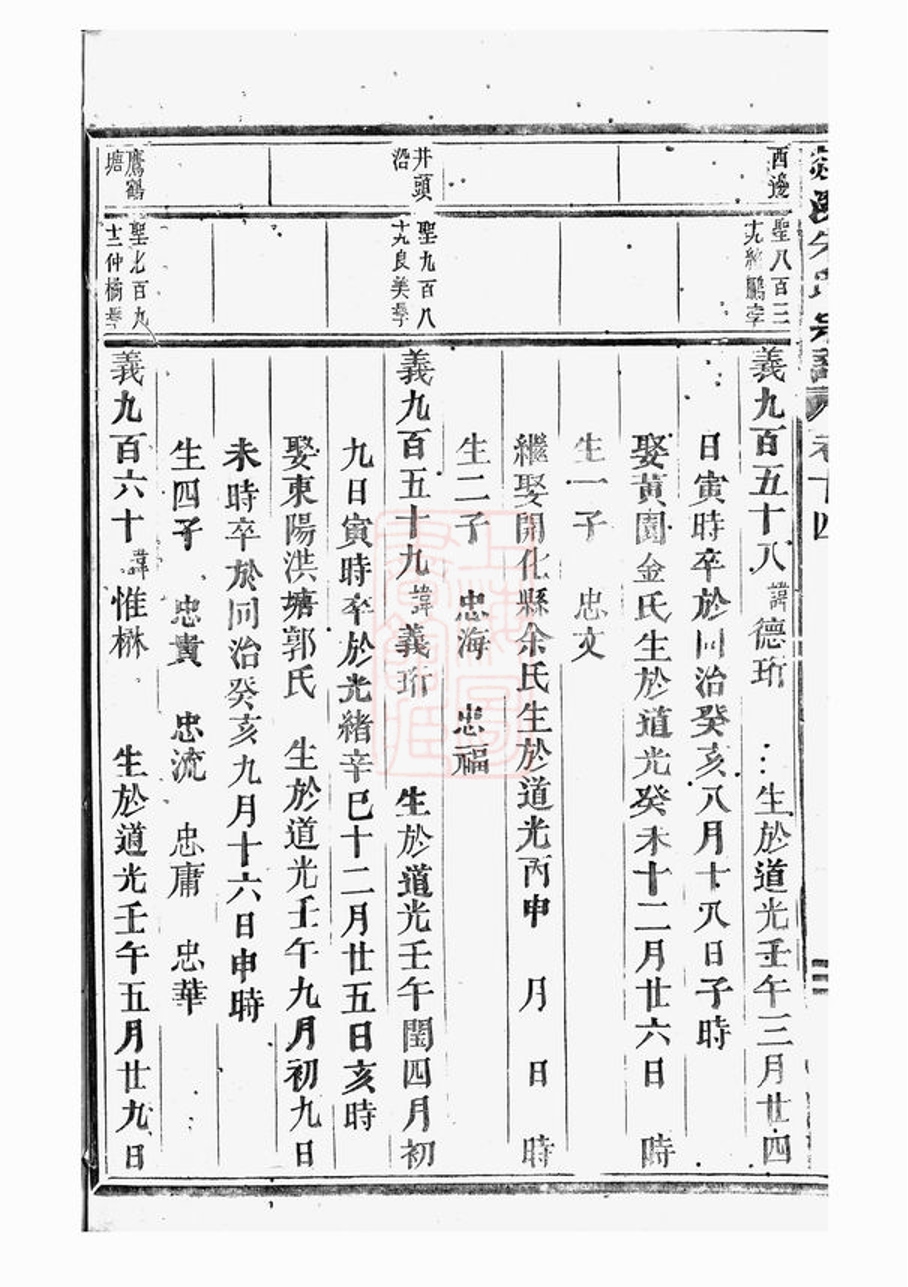 卷十四
西邊
聖八百三
十九
義九百五十八 諱德珩 生於道光壬午三月廿四
日寅時卒於同治癸亥八月十八日子時
娶黃園金氏生於道光癸未十二月廿六日 時
生一子 忠文
繼娶開化縣余氏生於道光丙申 月 日 時
生二子 忠海 忠福
井頭
沿
聖九百八
十九良美學
義九百五十九 諱義珩 生於道光壬午閏四月初
九日寅時卒於光緒辛巳十二月廿五日亥時
娶東陽洪塘郭氏 生於道光壬午九月初九日
未時卒於同治癸亥九月十六日申時
生四子 忠貴 忠流 忠庸 忠華
鷹鶴
塘
百九
十二仲橋學
義九百六十 諱惟楙 生於道光壬午五月廿九日